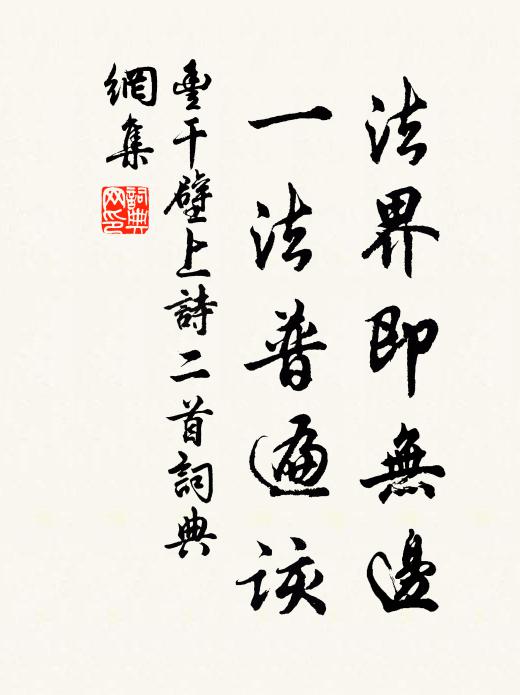 法界即無邊
一法普遍該
豊干壁上詩二首詞典
網集
詞典網印